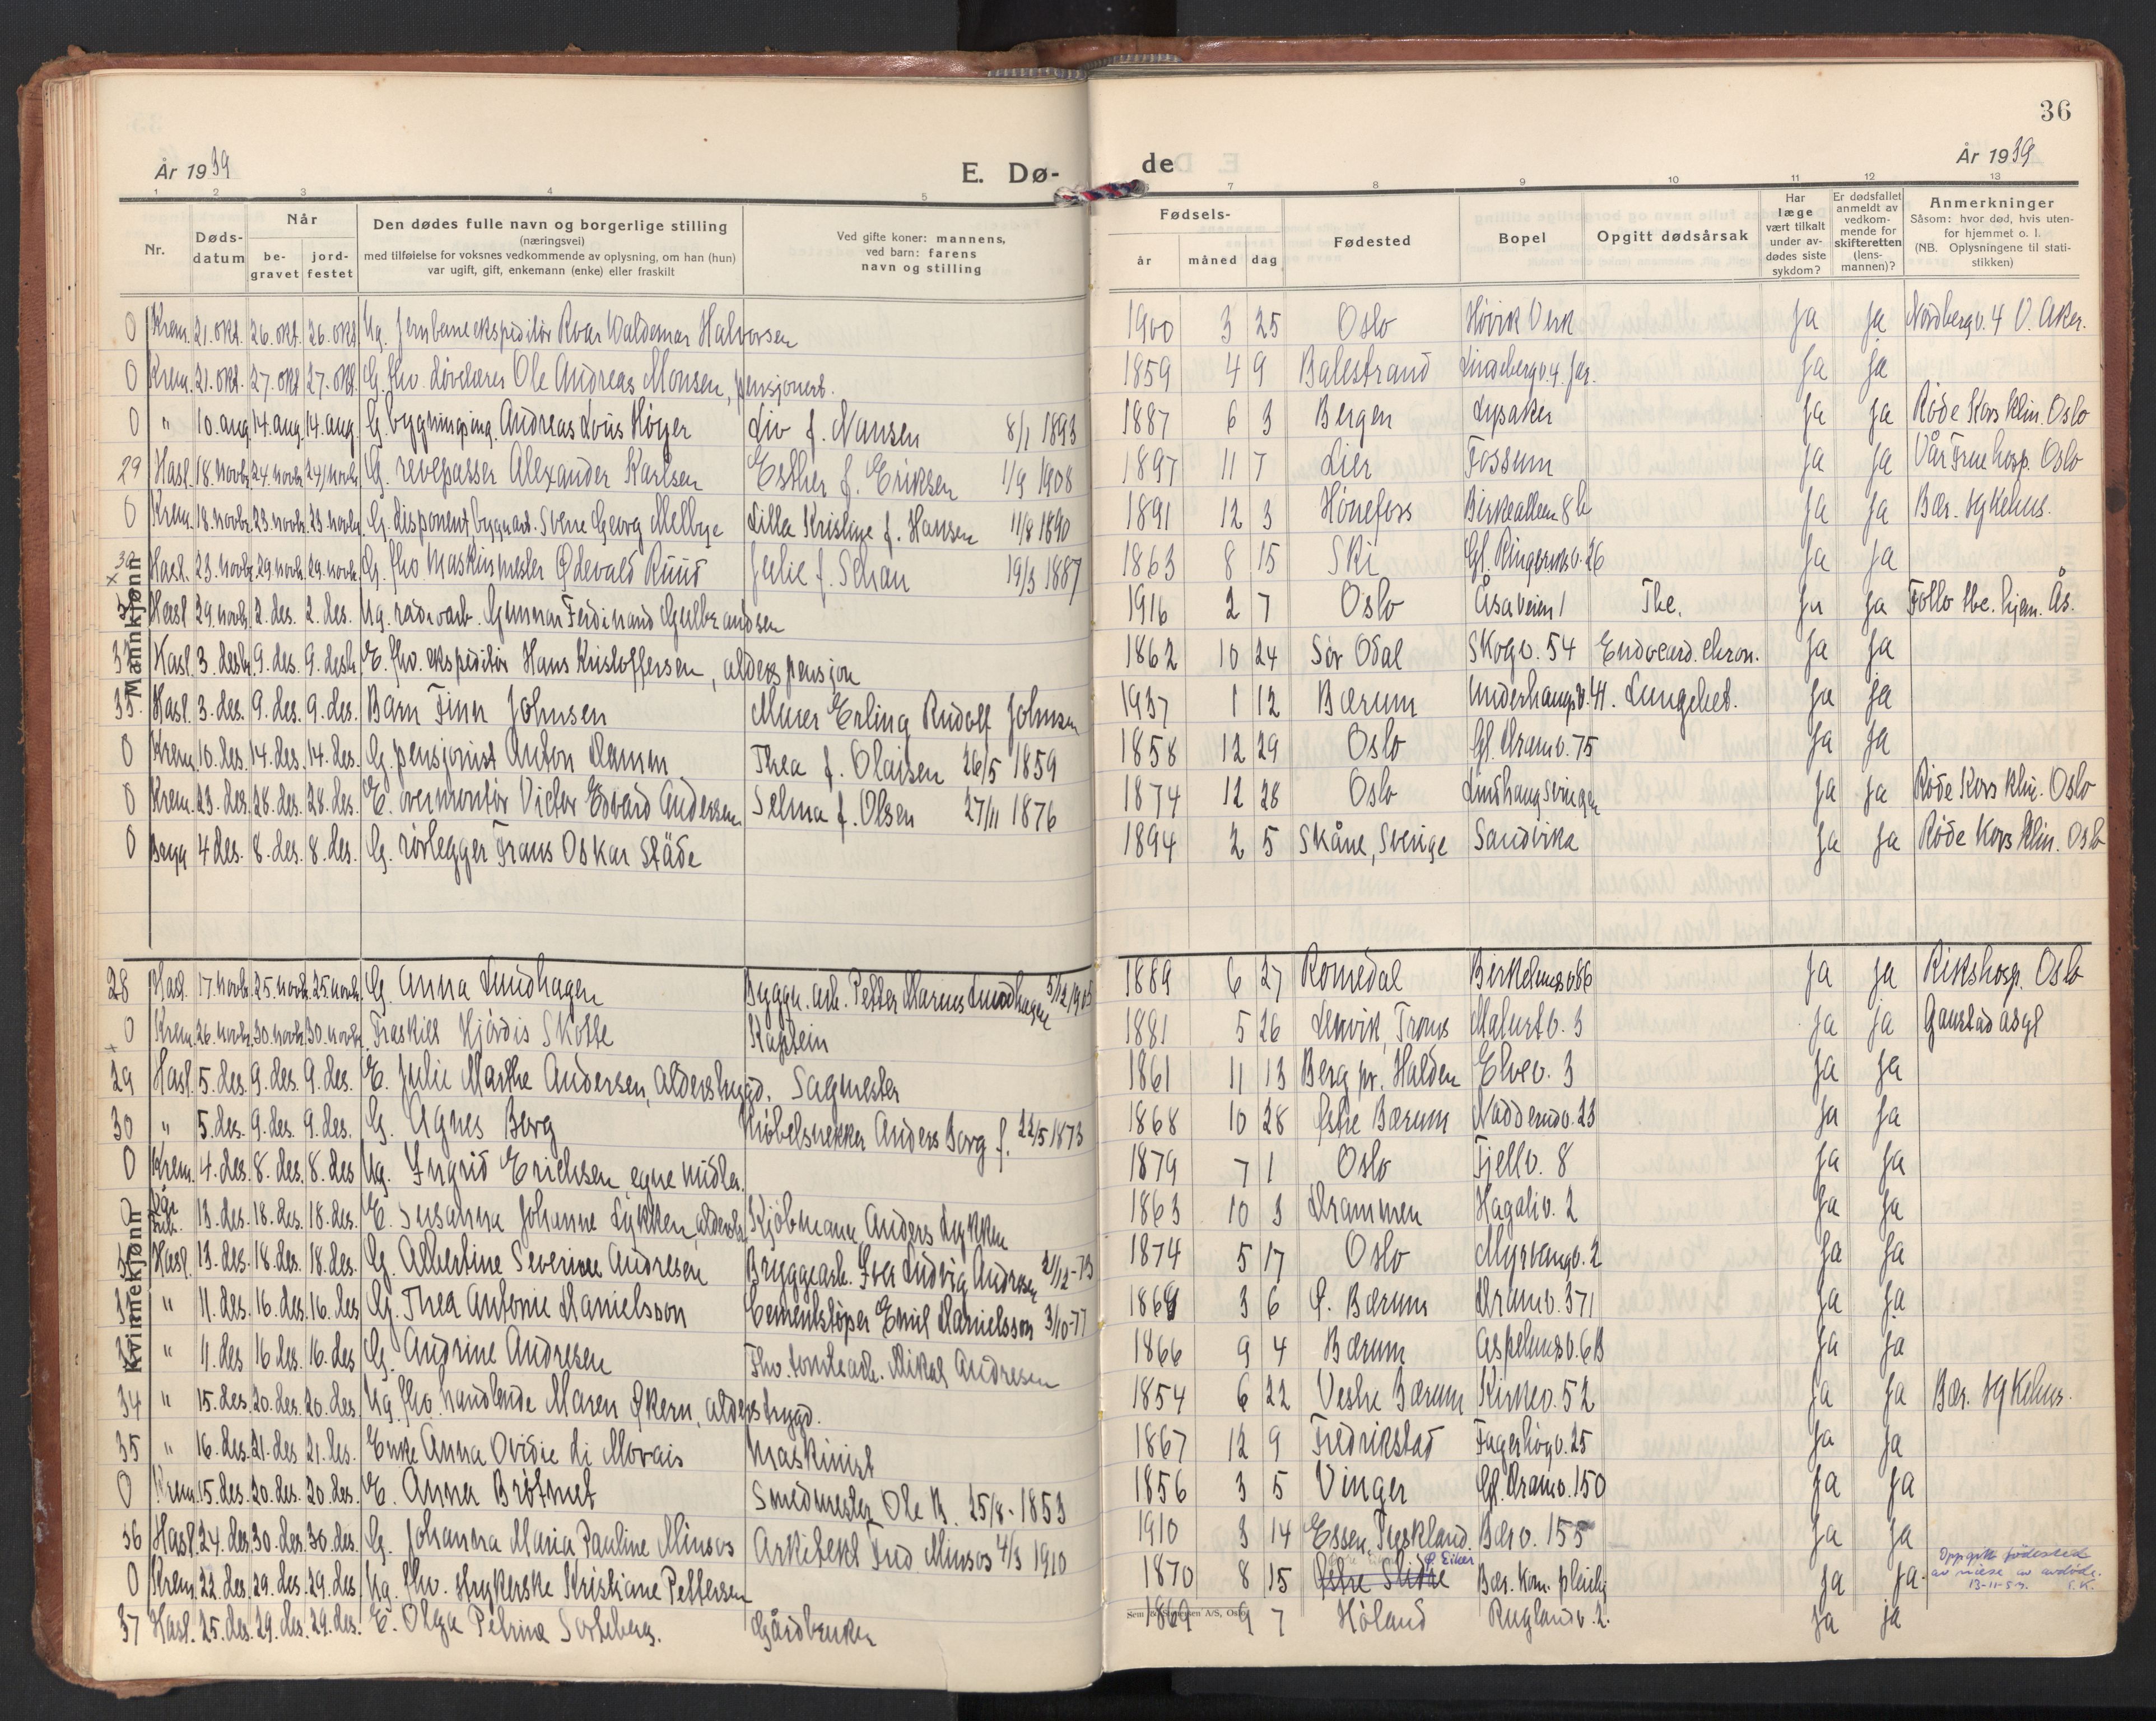 36
År 1939 E. Dø- de År 1939
1 2 3 4 5 6 7 8 9 10 11 12 13
Nr.
Døds-
datum
Når
be-
gravet
jord-
festet
Den dødes fulle navn og borgerlige stilling
(næringsvei)
med tilføielse for voksnes vedkommende av oplysning, om han (hun)
var ugift, gift, enkemann (enke) eller fraskilt
Ved gifte koner: mannens,
ved barn: farens
navn og stilling
Fødsels-
år måned dag
Fødested
Bopel
Opgitt dødsårsak
Har
læge
vært tilkalt
under av-
dødes siste
sykdom?
Er dødsfallet
anmeldt av
vedkom-
mende for
skifteretten
(lens-
mannen)?
Anmerkninger
Såsom: hvor død, hvis uten-
for hjemmet o. l.
(NB. Oplysningene til stati-
stikken)
Mannkjønn
0 Krem. 21. okt. 26. okt. 26. okt. Ug. jernbaneekspeditør Roar Valdemar Halvorsen 1900 3 25 Oslo Høvik Verk ja ja Nordbergv. 4 V. Aker.
0 Krem. 21. okt. 27. okt. 27. okt. G. fhv. Ole Andreas Monsen, pensjonert. 1859 4 9 Balestrand ja ja
0 " 10. aug. 14. aug. 14. aug. G. bygningsing. Andreas Louis Høyer Liv f. Nansen 8/1 1893 1887 6 3 Bergen Lysaker ja ja Røde Kors klin. Oslo
29 Hasl. 18. novbr. 24. novbr. 24. novbr. G. revepasser Alexander Karlsen Esther f. Eriksen 1/9 1908 1897 11 7 Lier Fossum ja ja Vår Frue hosp. Oslo
0 Krem. 18. novbr. 23. novbr. 23. novbr. G. disponent, Sverre Georg Melbye Lilla Kristine f. Hansen 11/8 1890 1891 12 3 Hønefoss Birkealleen 8 b ja ja Bær. sykehus.
Hasl. 23. novbr. 29. novbr. 29. novbr. G. fhv. maskinmester Odevald Ruud Julie f. 19/3 1887 1863 8 15 Ski Gl. Ringeriksv. 26 ja ja
Hasl. 29. novbr. 2. des. 2. des. Ug. Gunnar Ferdinand Gulbrandsen 1916 2 7 Oslo Åsaveien 1 Tbc. ja ja Follo tbc. hjem. Ås.
Hasl. 3. desbr. 9. des. 9. desbr. E. fhv. ekspeditør Hans Kristoffersen, alderspensjon 1862 10 24 Sør Odal Skogv. 54 Endocard. chron. ja ja
Hasl. 3. des. 9. des. 9. des. Barn Finn Johnsen Murer Erling Rudolf Johnsen 1937 1 12 Bærum Underhaugsv. 41. Lungebet. ja ja
0 Krem. 10. des. 14. des. 14. des. G. pensjonist Anton Damm Thea f. Olaisen 26/5 1859 1858 12 29 Oslo Gl. Dramv. 75 ja ja
0 Krem. 23. des. 28. des. 28. des. E. overmontør Victor Edvard Andersen Selma f. Olsen 27/11 1876 1874 12 28 Oslo Lindhaugsvingen ja ja Røde Kors klin. Oslo
0 Bryn 4 des. 8. des. 8. des. G. rørlegger Frans Oskar Städe 1894 2 5 Skåne, Sverige Sandvika ja ja Røde Kors klin. Oslo
Kvinnekjønn
28 Hasl. 17. novbr. 25. novbr. 25 novbr. G. Anna Lundhagen Byggn. arb. Petter Marius Lundhagen 5/12 1905 1889 6 27 Romedal ja ja Rikshosp. Oslo
0 Krem. 26. novbr. 30. novbr. 30. novbr. Fraskilt Hjørdis Skotte Kaptein 1881 5 26 Lenvik, Troms Malurtv. 3 ja ja Gaustad asyl
29 Hasl. 5. des. 9. des. 9. des. E. Julie Marthe Andersen, alderstrygd. Sagmester 1861 11 13 Berg pr. Halden Elvev. 3 ja ja
30 " 5. des. 9. des. 9. des. G. Agnes Berg Møbelsnekker Anders Berg f. 22/5 1873 1868 10 28 Østre Bærum Nadderudv. 23 ja ja
0 Krem. 4. des. 8. des. 8. des Ug. Ingrid Erichsen egne midler. 1879 7 1 Oslo Fjellv. 8 ja ja
0 13. des. 18. des. 18. des. E. Susanna Johanne Lykken, Kjøbmann Anders Lykken 1863 10 3 Drammen Hagaliv. 2 ja ja
Hasl. 13. des. 18. des. 18. des. G. Albertine Severine Andresen Bryggearb. Iver Ludvig Andresen 2/12-73 1874 5 17 Oslo Myrvangv. 2 ja ja
" 11. des. 16. des. 16. des G. Thea Antonie Danielsson Cementstøper Emil Danielsson 3/10-77 3 6 Ø. Bærum Dramv. 371 ja ja
" 11. des 16 des. 16. des G. Andrine Andresen Fhv. tomtearb. Mikal Andresen 1866 9 4 Bærum Aspelundv. 6B ja ja
34 " 15. des. 20. des. 20. des. Ug. fhv. handlende Maren Økern, alderstrygd. 1854 6 22 Vestre Bærum Kirkev. 52 ja ja Bær. sykehus.
35 " 16. des. 21. des 21. des. Enke Anna Ovidie di Morais Maskinist 1867 12 9 Fredrikstad Fagerhøgv. 25 ja ja
0 Krem. 15. des. 20. des. 20. des. E. Anna Brøtnet Smedmester Ole B. 25/8-1853 1856 3 5 Vinger Gl. Dramv. 150 ja ja
36 Hasl. 24. des. 30. des. 30. des. G. Johanna Maria Pauline Minsos Arkitekt Fred. Minsos 4/3 1910 1910 3 14 Essen, Tyskland. Bærv. 155 ja ja
0 Krem. 22. des. 29. des. 29. des. Ug. fhv. strykerske Kristiane Pettersen 1870 8 15 Ø. Eiker Bær. kom. pleiehj ja ja. Oppgitt fødested
av niese av avdøde.
13-11-53. S.K.
37 Hasl. 25. des. 29. des. 29. des. E. Olga Petrine Sorteberg. Gårdbruker 1869 9 7 Høland Ruglandv. 2. ja ja
Sem & Stenersen A/S, Oslo